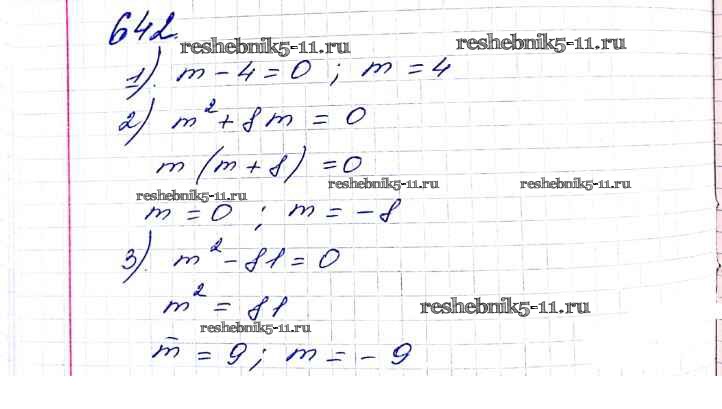 642.
reshebnik5-11.ru
reshebnik5-11.ru
1). m - 4 = 0 ; m = 4
2) m² + 8m = 0
m (m + 8) = 0
reshebnik5-11.ru
reshebnik5-11.ru
reshebnik5-11.ru
m = 0 ; m = -8
3). m² - 81 = 0
m² = 81
reshebnik5-11.ru
reshebnik5-11.ru
m = 9 ; m = - 9